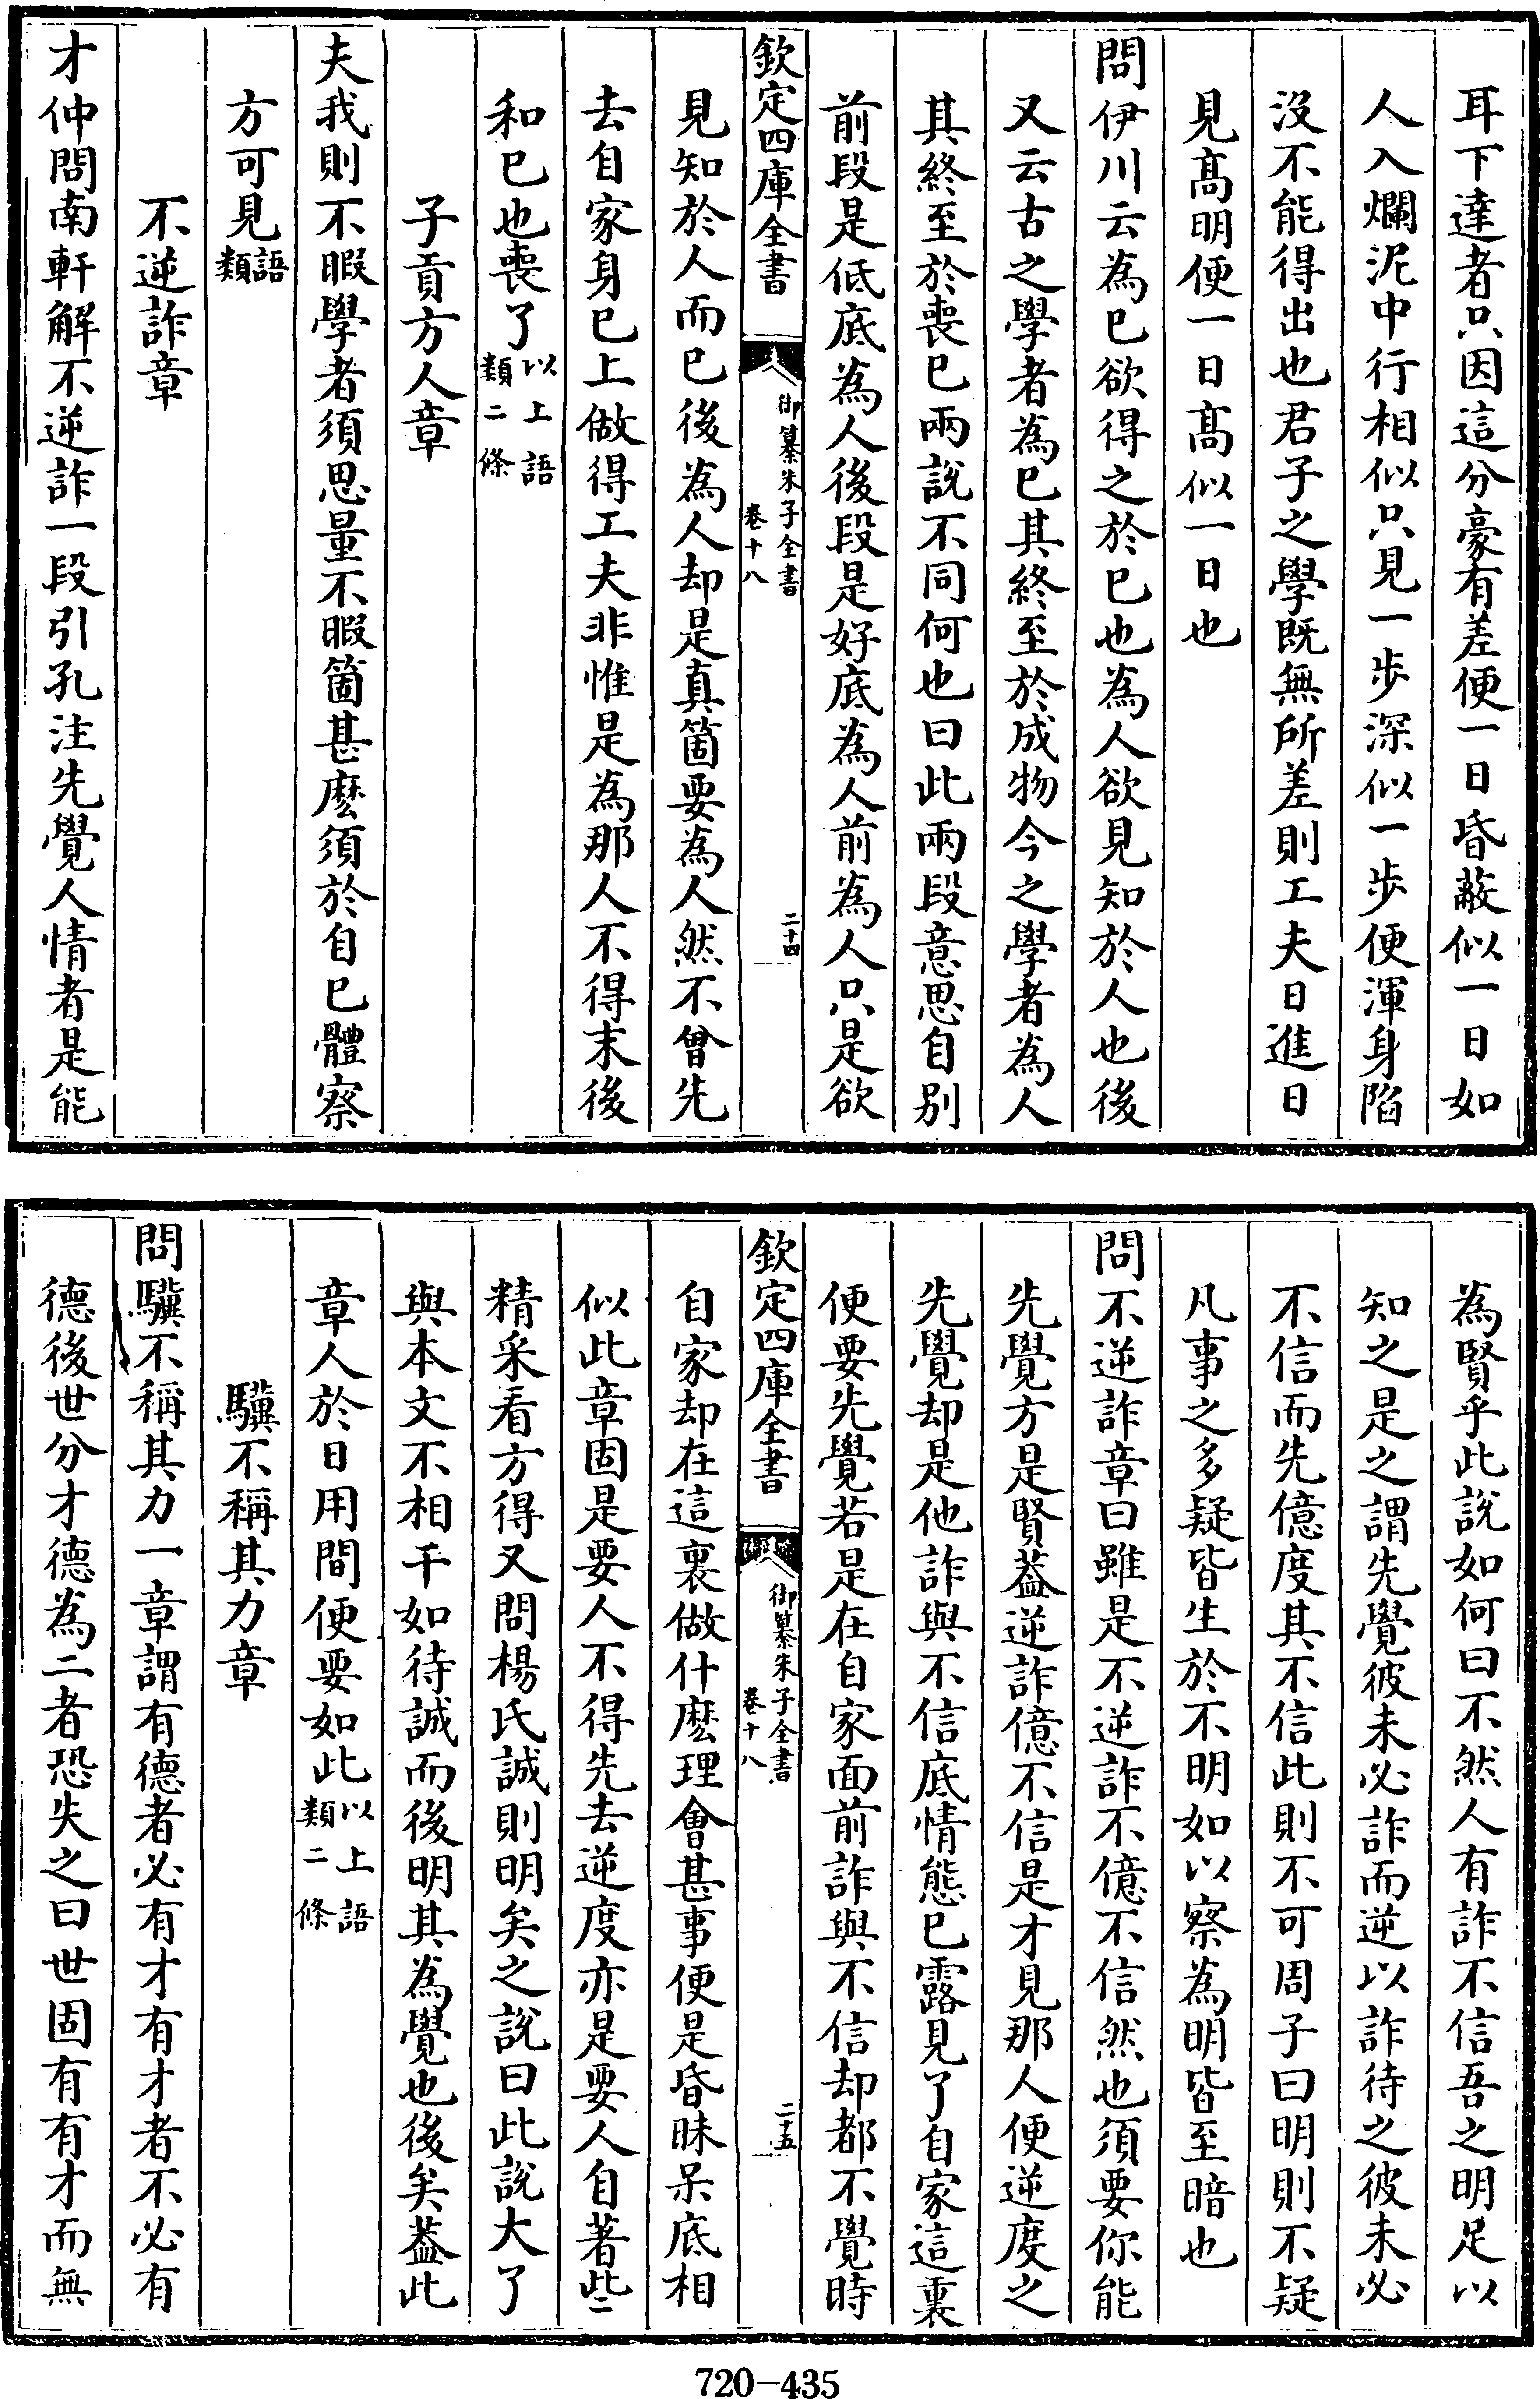 耳下達者只因這分豪有差便一日昏蔽似一日如
人入爛泥中行相似只見一步深似一步便渾身陷
沒不能得出也君子之學既無所差則工夫日進日
見髙明便一日髙似一日也
問伊川云為已欲得之於已也為人欲見知於人也後
又云古之學者為已其終至於成物今之學者為人
其終至於喪已兩說不同何也曰此兩段意思自别
前段是低底為人後段是好底為人前為人只是欲
欽定四庫全書
御纂朱子全書
卷十八
二十四
見知於人而已後為人却是真箇要為人然不曾先
去自家身已上做得工夫非惟是為那人不得末後
和已也喪了以上語類二條
子貢方人章
夫我則不暇學者須思量不暇箇甚麽須於自已體察
方可見語類
不逆詐章
才仲問南軒解不逆詐一段引孔注先覺人情者是能
為賢乎此說如何曰不然人有詐不信吾之明足以
知之是之謂先覺彼未必詐而逆以詐待之彼未必
不信而先億度其不信此則不可周子曰明則不疑
凡事之多疑皆生於不明如以察為明皆至暗也
問不逆詐章曰雖是不逆詐不億不信然也須要你能
先覺方是賢葢逆詐億不信是才見那人便逆度之
先覺却是他詐與不信底情態已露見了自家這裏
便要先覺若是在自家面前詐與不信却都不覺時
欽定四庫全書
御纂朱子全書
卷十八
二十五
自家却在這裏做什麽理會甚事便是昏昧呆底相
似此章固是要人不得先去逆度亦是要人自著些
精采看方得又問楊氏誠則明矣之說曰此說大了
與本文不相干如待誠而後明其為覺也後矣葢此
章人於日用間便要如此以上語類二條
驥不稱其力章
問驥不稱其力一章謂有德者必有才有才者不必有
德後世分才德為二者恐失之曰世固有有才而無
720-435